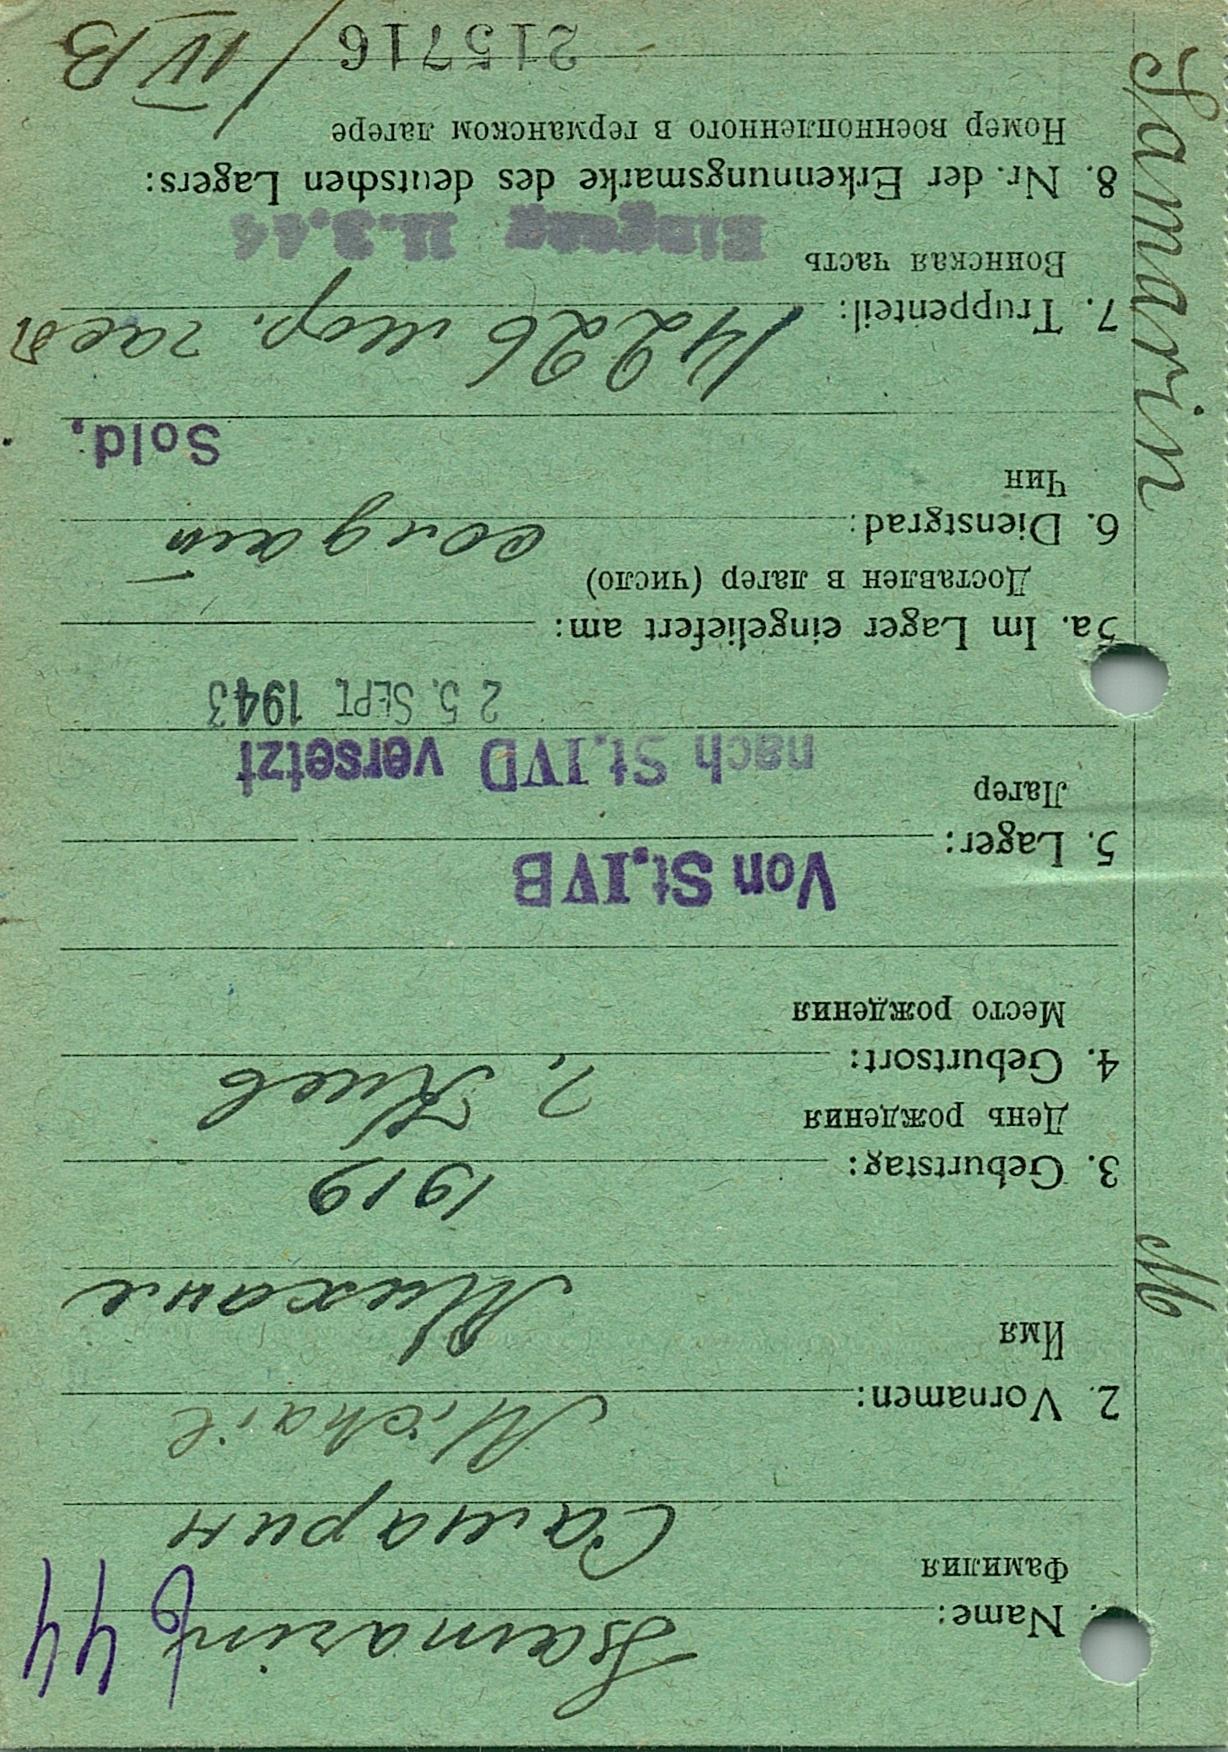 Samarin M
1. Name: Ssamarin
Фамилия
44
Самарин
2. Vornamen: Michail
Имя
Михаил
1919
3. Geburtstag:
День рождения
г. Киев
4. Geburtsort:
Место рождения
Von St.IVB
5. Lager:
Лагер
nach St.IVD versetzt
25. SEPT. 1943
5a. Im Lager eingeliefert am:
Доставлен в лагер (число)
6. Dienstgrad: солдат
Чин
Sold.
7. Truppenteil: 14226 мор. част
Воинская часть
Eingang 11.3.44
8. Nr. der Erkennungsmarke des deutschen Lagers:
Номер военнопленного в германском лагере
215716 / IV B